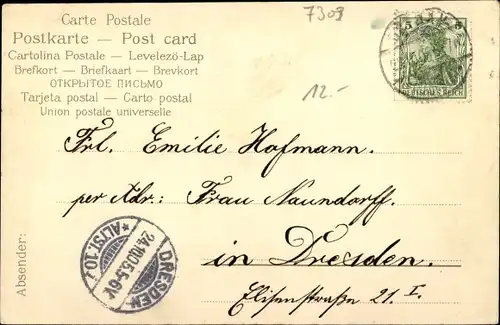 Carte Postale
Postkarte — Post card
Cartolina Postale — Levelező-Lap
Brefkort — Briefkaart — Brevkort
ОТКРЫТОЕ ПИСЬМО
Tarjeta postal — Carto postal
Union postale universelle
7309
12.-
5 5
DEUTSCHES REICH
Frl. Emilie Hofmann.
per Adr: Frau Naundorff.
in Dresden.
Elisenstraße 21. I.
Absender:
DRESDEN
*ALTST. 10.
24.10.05.5-6V.